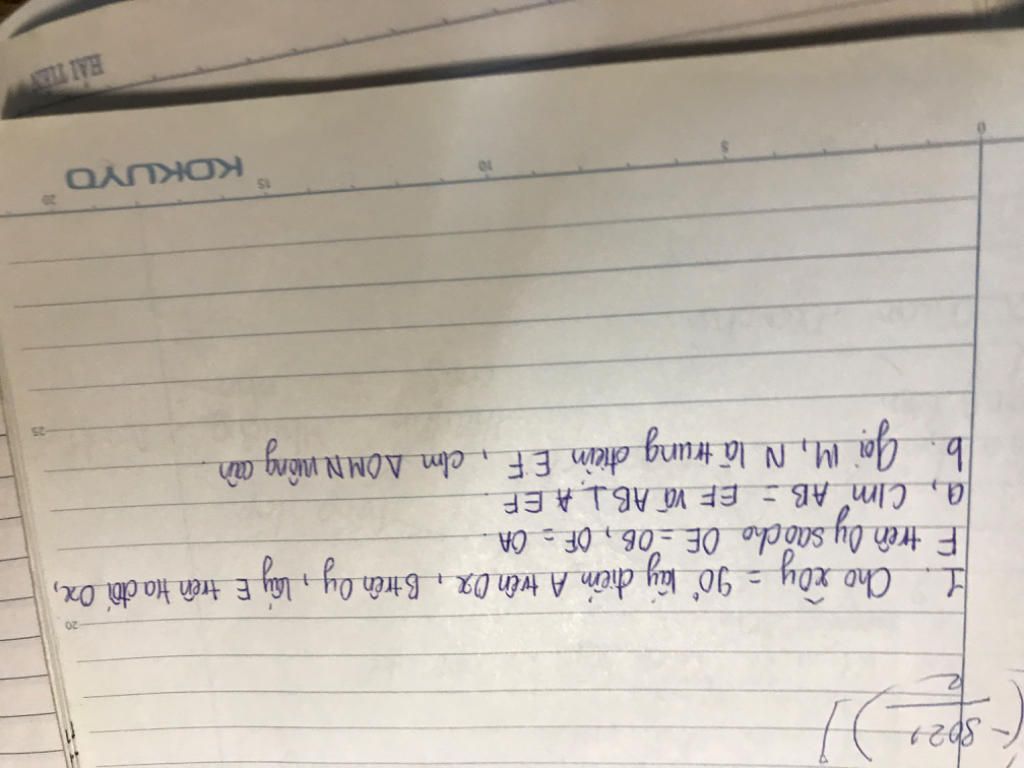 (- 2021 / 2 )]
1. Cho xÔy = 90° lấy điểm A trên Ox, B trên Oy, lấy E trên tia đối Ox,
F trên Oy sao cho OE = OB, OF = OA.
a, C/m AB = EF và AB ⊥ EF.
b. Gọi M, N là trung điểm EF, c/m ΔOMN vuông cân
25
20
KOKUYO
20 15 10 5 0
HẢI TIẾN